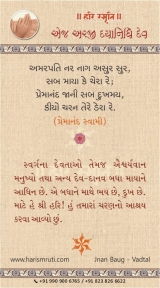 ॥ हरि स्मृति ॥
એજ અરજી દયાનિધિ દેવ
અમરપતિ નર નાગ અસુર સુર,
સબ માયા કે ચેરા રે;
પ્રેમાનંદ જાની સબ દુઃખમય,
કીયો ચરન તેરે ડેરા રે.
(પ્રેમાનંદ સ્વામી)
સ્વર્ગના દેવતાઓ તેમજ ઐશ્વર્યવાન
મનુષ્યો તથા અન્ય દેવ-દાનવ બધા માયાને
આધિન છે. એ બધાને માથે ભય છે, દુઃખ છે.
માટે હે શ્રી હરિ! હું તમારાં ચરણનો આશ્રય
કરવા આવ્યો છું.
www.harismruti.com
Jnan Baug - Vadtal
+91 990 900 6765 / +91 823 826 6622